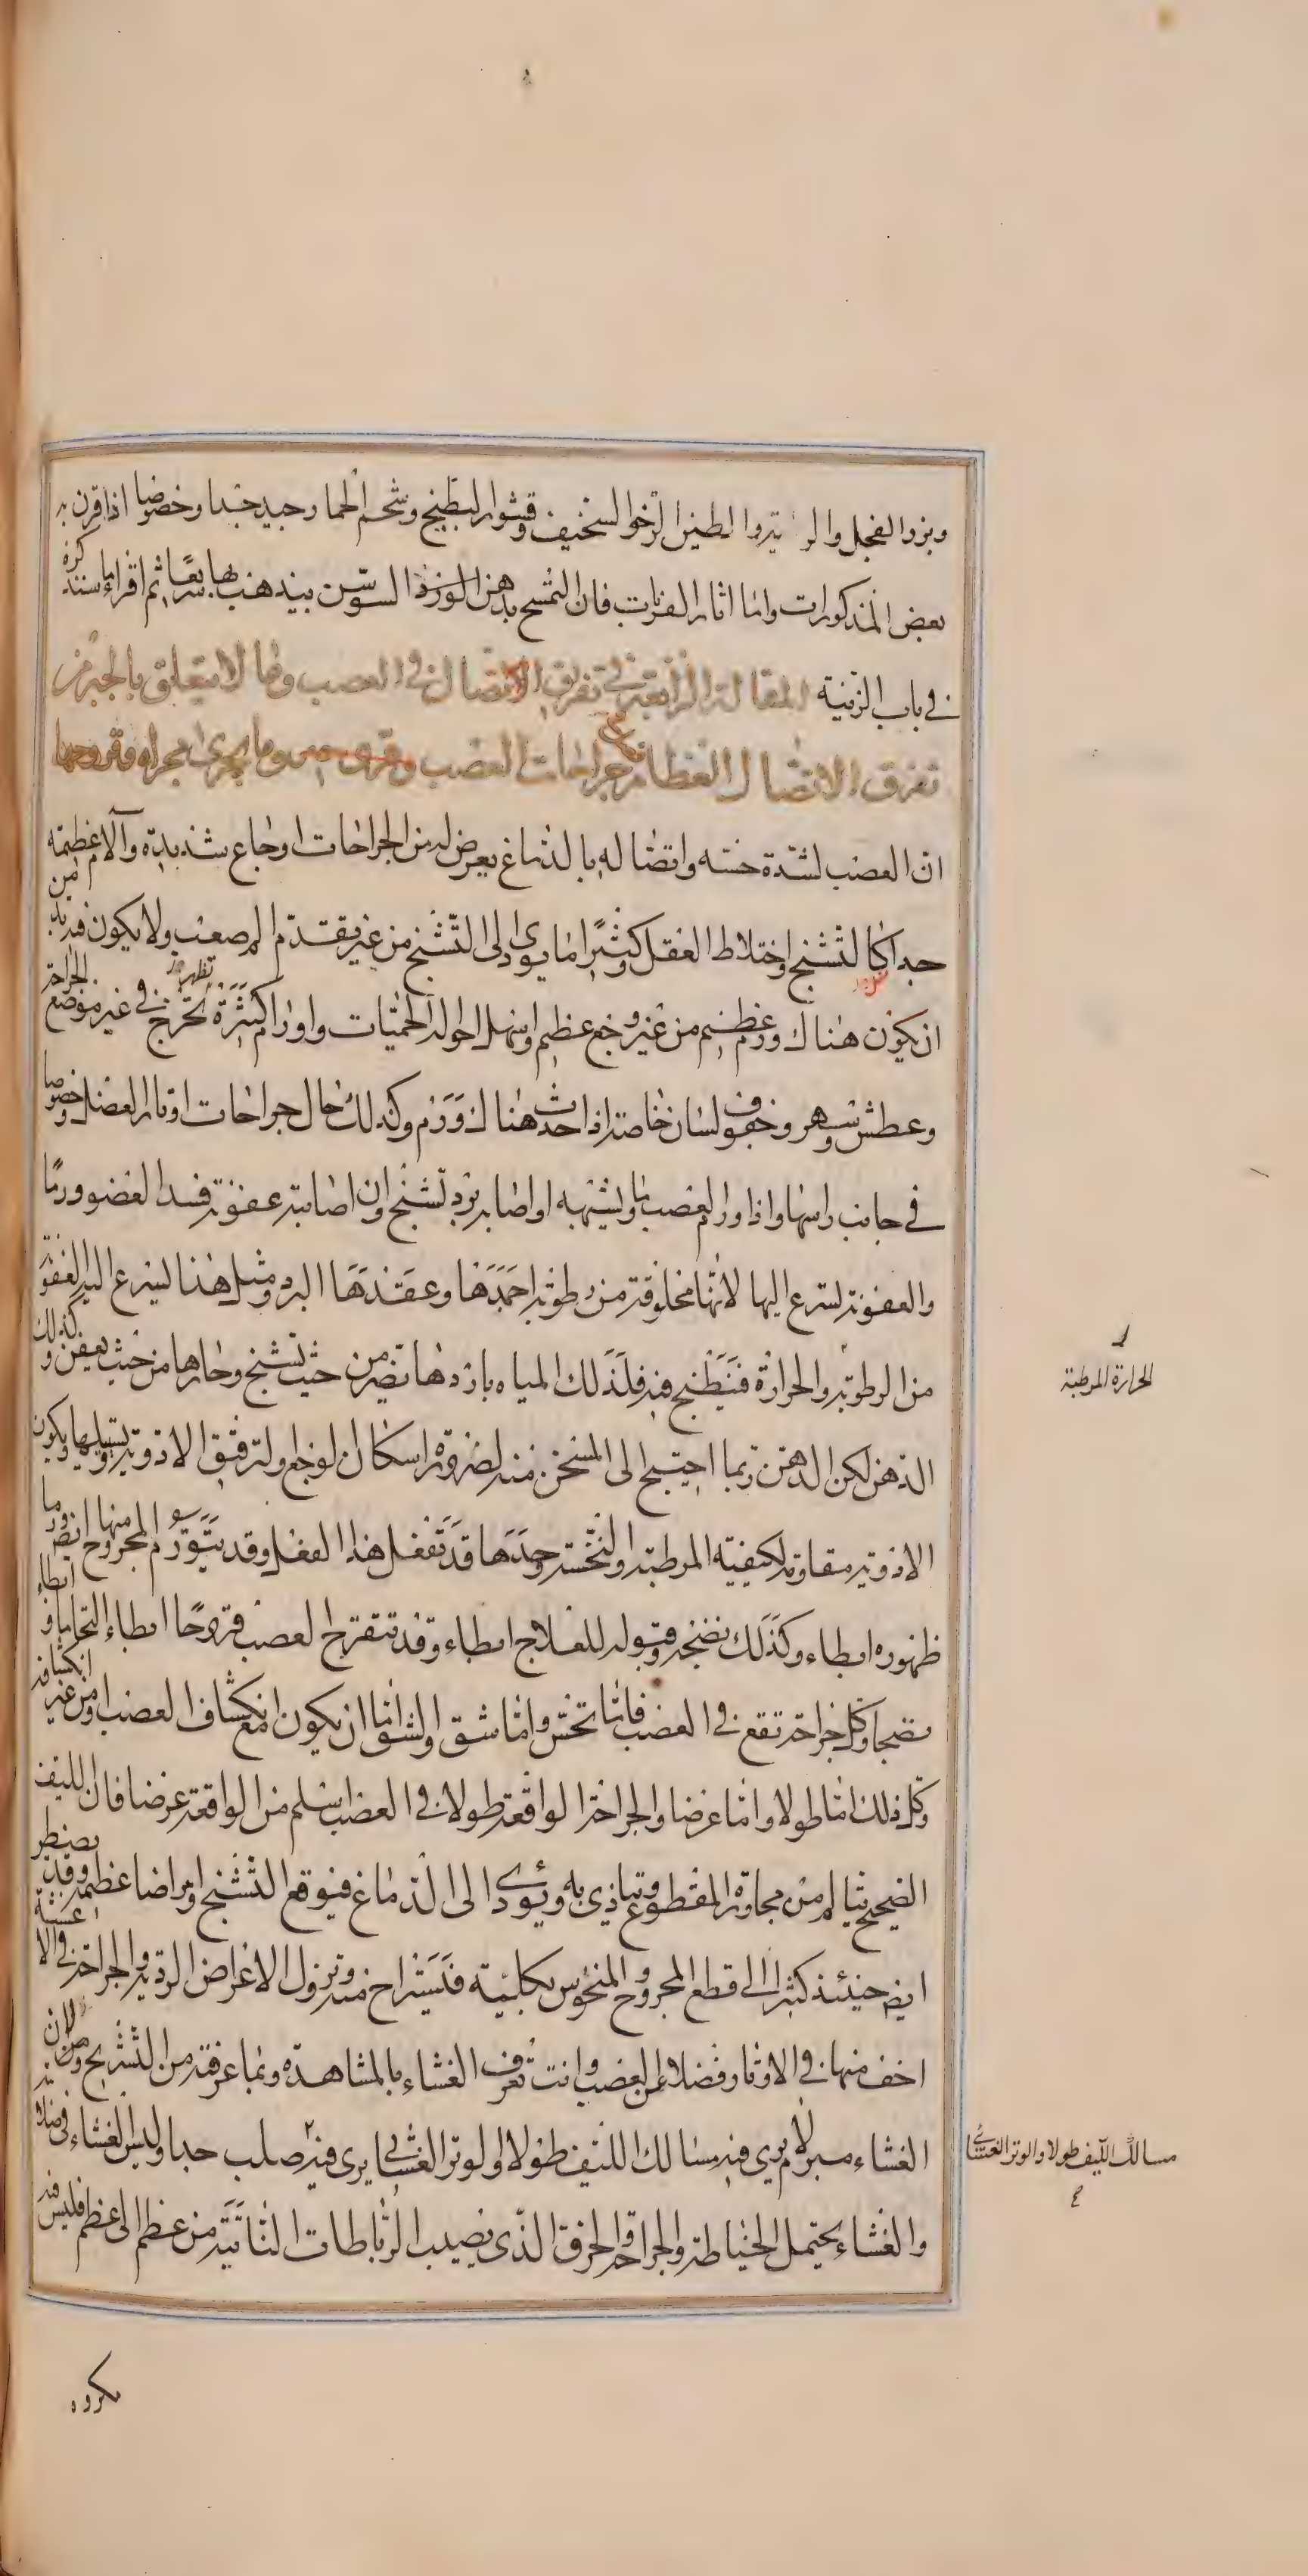 وبزر الفجل والطين الرخو السخيف وقشور البطيخ وشحم الحمار جيد جدا وخصوصا اذا قرن به
بعض المذكورات واما اثار الضربات فان التمسح بدهن الورد السوسن يذهب بها سريعا ثم اقرا ما سنذكره
في باب الزينة المقالة الرابعة في تفرق الاتصال في العصب وما لا يتعلق بالجبر من
تفرق الاتصال العظام فصل في جراحات العصب وما يجري مجراه وقروحها
ان العصب لشدة حسه واتصاله بالدماغ يعرض له من الجراحات اوجاع شديدة وآلام عظيمة
جدا كالتشنج واختلاط العقل وكثيرا ما يودى الى التشنج من غير تقدم الم صعب ولا يكون فيه بد من
ان يكون هناك ورم عظيم من غير وجع عظيم اسهل احواله الحميات واورام كثيرة تخرج تظهر في غير موضع الجراحة
وعطش وسهر وجفوف لسان خاصة اذا حدث هناك ورم وكذلك حال جراحات اوتار العضل وخصوصا
في جانب راسها واذا ورم العصب وما يشبهه او اصابه برد تشنج وان اصابته عفونة فسد العضو ورما
والعفونة تسرع اليها لانها مخلوقة من رطوبة اجمدها وعقدها البرد ومثل هذا يسرع اليه العفونة
من الرطوبة والحرارة فتطبخ فيه فلذلك المياه باردها تضر من حيث تشنج وحارها من حيث يعفن وكذلك
الدهن لكن الدهن ربما احتيج الى المسخن منه لضرورة اسكان الوجع ولترقيق الادوية وتسييلها ويكون
الادوية مقاومة لكيفيته المرطبة والنخسة وحدها قد تفعل هذا الفعل وقد يتورم المجروح منها ايضا وربما
ظهوره ابطاء وكذلك نضجه وقبوله للعلاج ابطاء وقد تتقرح العصب قروحا ابطاء التحاما وابطاء
نضجا وكل جراحة تقع في العصب فاما نخس واما شق والشق اما ان يكون مع انكشاف العصب او من غير انكشافه
وكل ذلك اما طولا واما عرضا والجراحة الواقعة طولا في العصب اسلم من الواقعة عرضا فان الليف
الصحيح يتالم من مجاورة المقطوع وتتاذى به ويؤدى الى الدماغ فيوقع التشنج وامراضا عظيمة وقد يضطر
ايضا حينئذ كثيرا الى قطع المجروح والمنخوس بكليته فيستراح منه وتزول الاعراض الردية والجراحة في الاغشية
اخف منها في الاوتار فضلا عن العصب وانت تعرف الغشاء بالمشاهدة وبما عرفته من التشريح ومن ان
الغشاء مبرم لا يرى فيه مسالك الليف طولا والوتر الغشائي يرى فيه صلب جدا وليس الغشاء فى صلابته
والغشاء يحتمل الخياطة والجراحة والخرق الذي يصيب الرباطات النابتة من عظم الى عظم فليس فيه
مكروه
الحرارة المرطبة
مسالك الليف طولا والوتر الغشائي